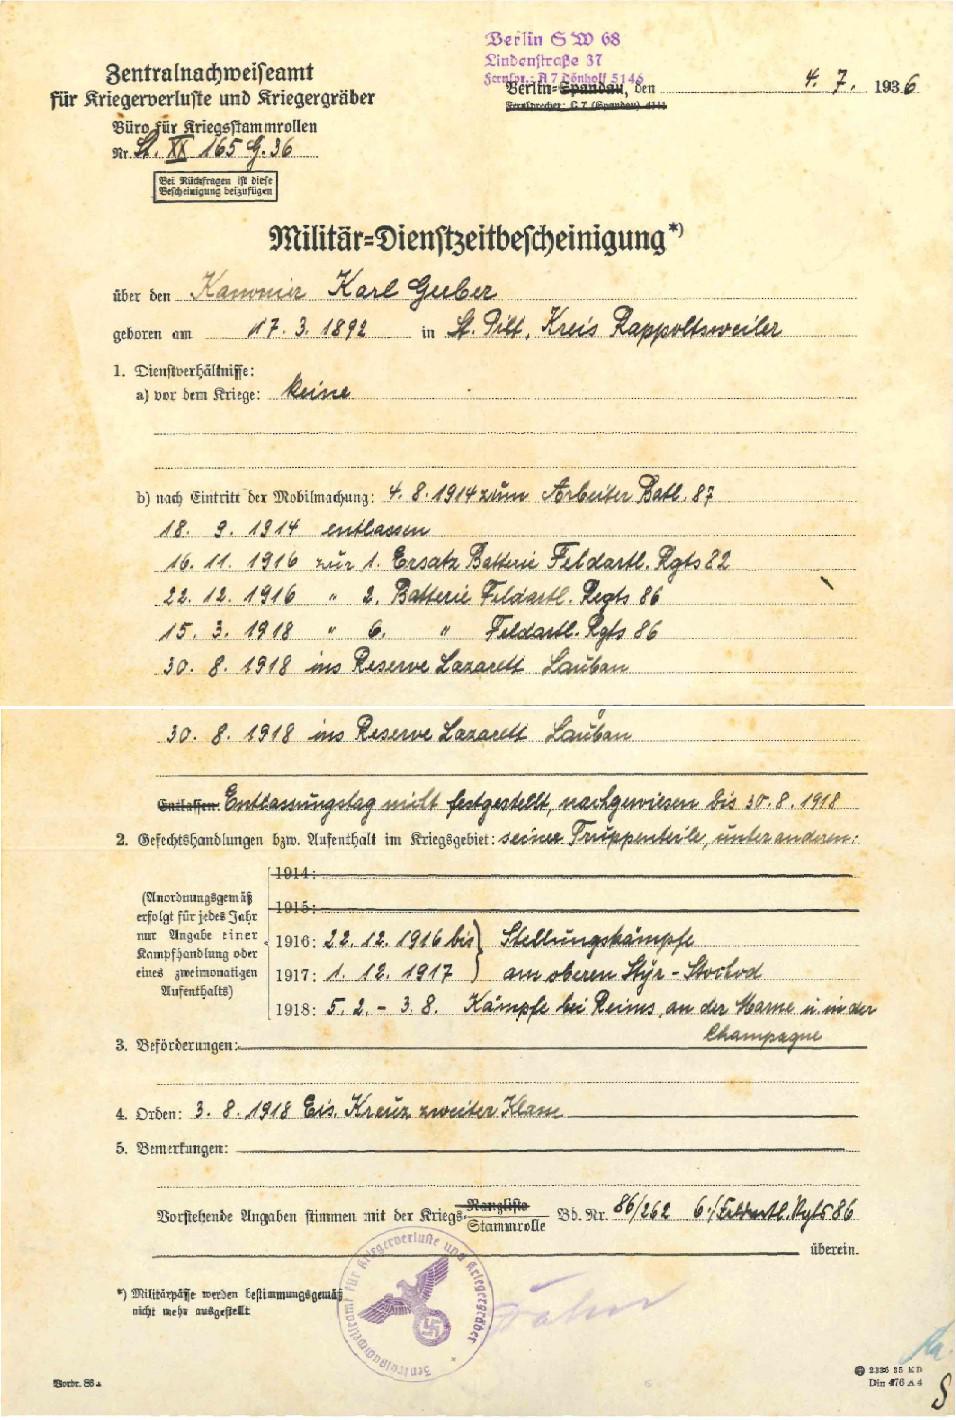 Berlin SW 68
Lindenstraße 37
Fernspr.: A 7 Dönhoff 5146
Zentralnachweiseamt
für Kriegerverluste und Kriegergräber
Berlin-Spandau, den 4. 7. 1936
Fernsprecher: C 7 (Spandau)
Büro für Kriegsstammrollen
Nr. St. XX 165 G. 36
Bei Rückfragen ist diese
Bescheinigung beizufügen
Militär-Dienstzeitbescheinigung*)
über den Kanonier Karl Gerber
geboren am 17. 3. 1892 in St. Pilt, Kreis Rappoltsweiler
1. Dienstverhältnisse:
a) vor dem Kriege: keine
b) nach Eintritt der Mobilmachung: 4. 8. 1914 zum Arbeiter Batl. 87
18. 9. 1914 entlassen
16. 11. 1916 zur 1. Ersatz Batterie Feldartl. Rgts 82
22. 12. 1916 " 2. Batterie Feldartl. Regts 86
15. 3. 1918 " 6. " Feldartl. Rgts 86
30. 8. 1918 ins Reserve Lazarett Lauban
30. 8. 1918 ins Reserve Lazarett Lauban
Entlassen: Entlassungstag nicht festgestellt, nachgewiesen bis 30. 8. 1918
2. Gefechtshandlungen bzw. Aufenthalt im Kriegsgebiet: seiner Truppenteile, unter anderen:
(Anordnungsgemäß
erfolgt für jedes Jahr
nur Angabe einer
Kampfhandlung oder
eines zweimonatigen
Aufenthalts)
1914:
1915:
1916: 22. 12. 1916 bis } Stellungskämpfe
1917: 1. 12. 1917 } am oberen Styr - Stochod
1918: 5. 2. - 3. 8. Kämpfe bei Reims, an der Marne u. in der
Champagne
3. Beförderungen:
4. Orden: 3. 8. 1918 Eis. Kreuz zweiter Klasse
5. Bemerkungen:
Vorstehende Angaben stimmen mit der Kriegs- Rangliste
Stammrolle Bd. Nr. 86/262 6./Feldartl. Rgts 86
überein.
Zentralnachweiseamt für Kriegerverluste und Kriegergräber
*) Militärpässe werden bestimmungsgemäß
nicht mehr ausgestellt
Vordr. 86a
2336 35 KD
Din 476 A 4